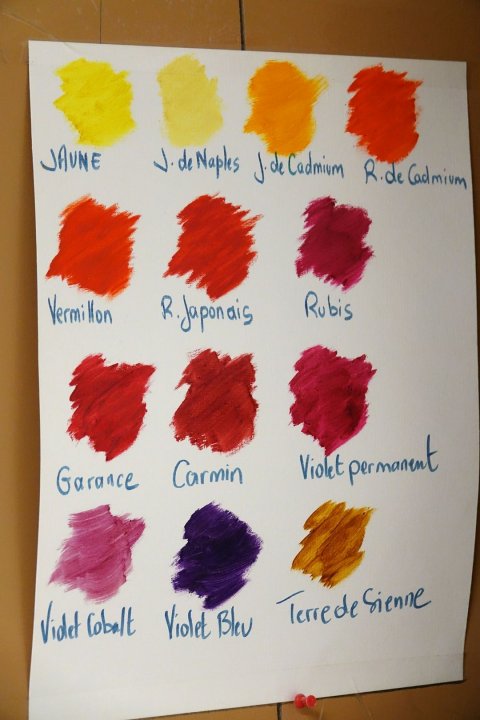 JAUNE J. de Naples J. de Cadmium R. de Cadmium
Vermillon R. Japonais Rubis
Garance Carmin Violet permanent
Violet Cobalt Violet Bleu Terre de Sienne